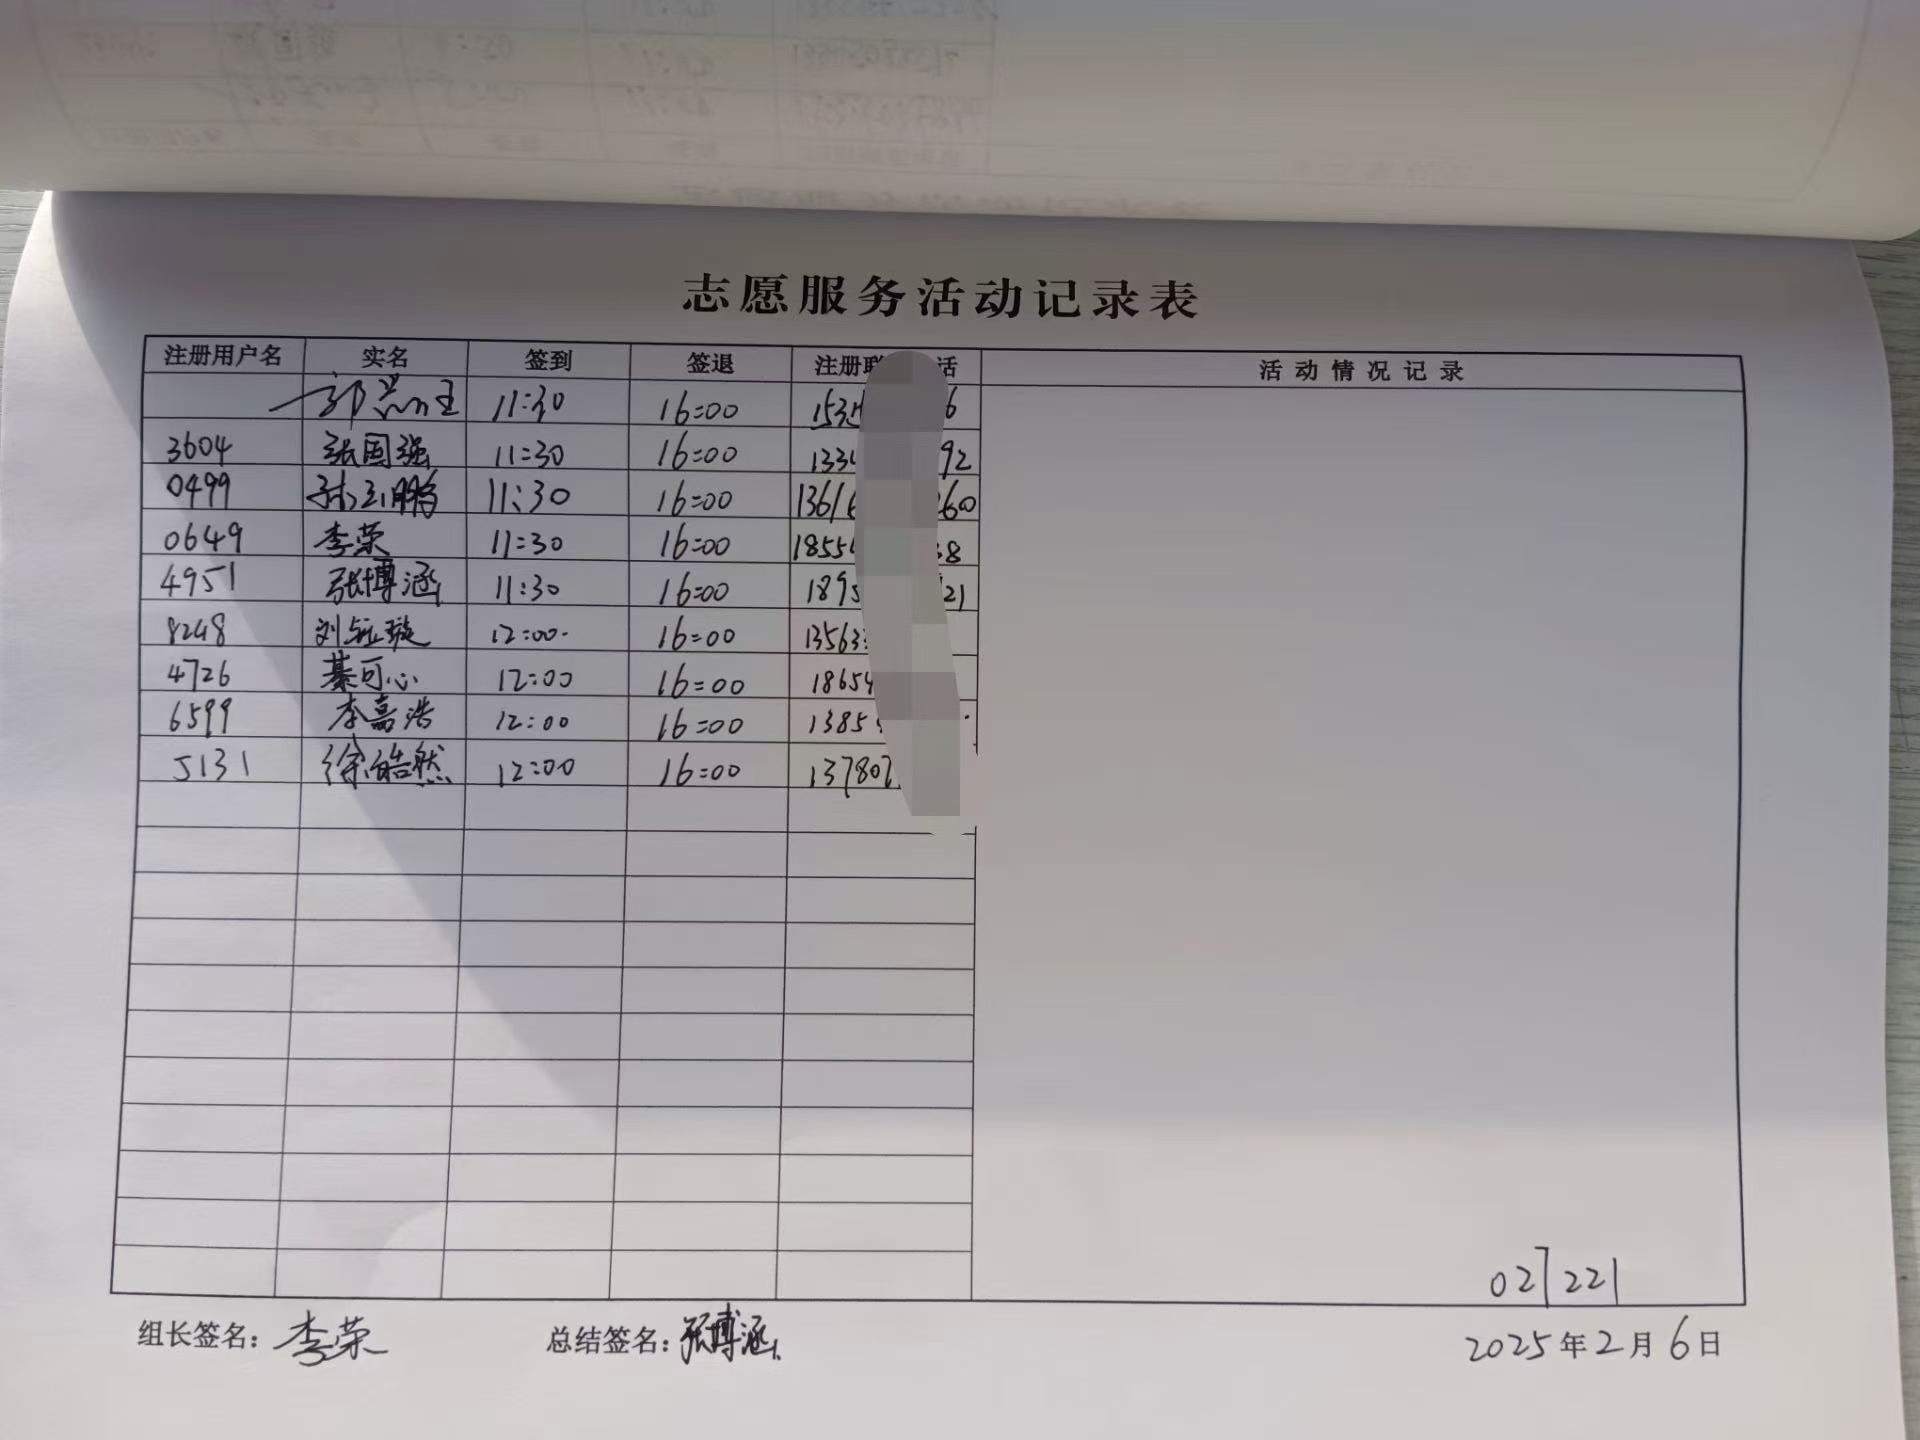 志愿服务活动记录表
注册用户名 实名 签到 签退 注册联 话 活动情况记录
11:30 16:00 153 6
3604 张国强 11:30 16:00 133 92
0499 孙玉鹏 11:30 16:00 1361 60
0649 李荣 11:30 16:00 1855 38
4951 张博涵 11:30 16:00 189 21
8248 刘钰璇 12:00 16:00 13563
4726 綦可心 12:00 16:00 1865
6599 李嘉浩 12:00 16:00 1385
5131 徐皓然 12:00 16:00 13780
027 221
组长签名：李荣 总结签名：张博涵 2025年2月6日